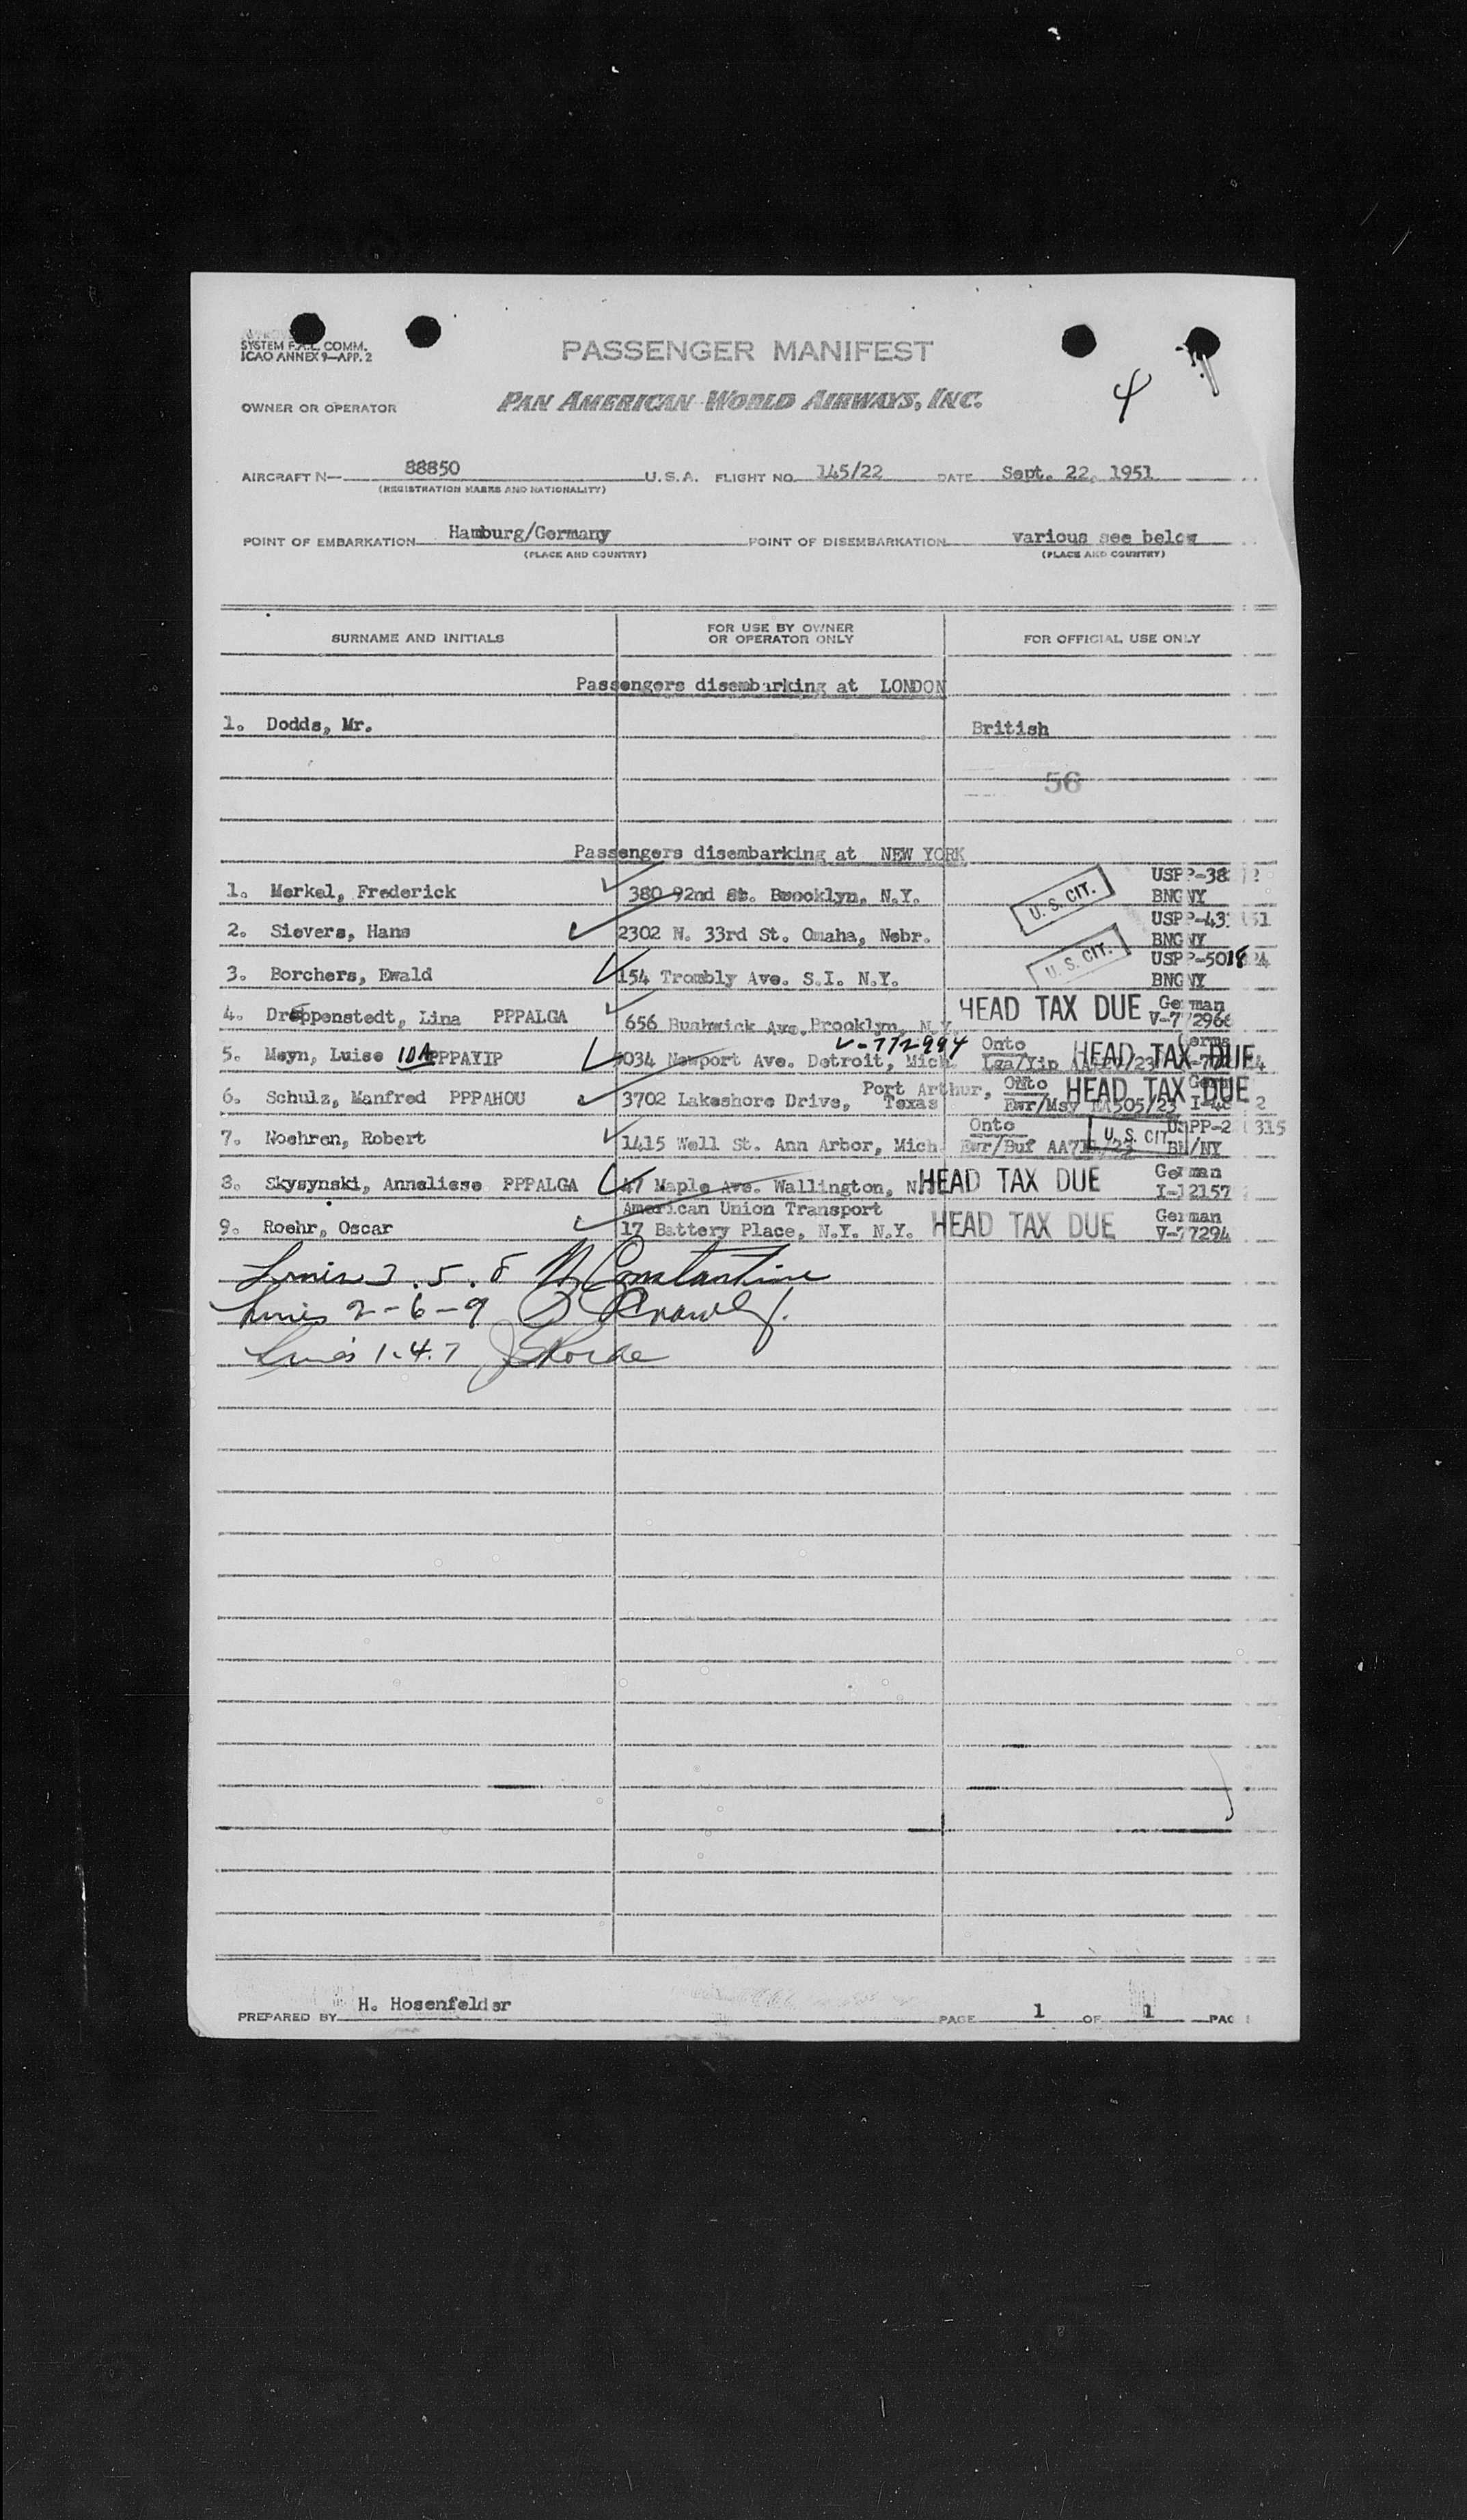 SYSTEM F.A.L. COMM.
ICAO ANNEX 9—APP. 2
PASSENGER MANIFEST
OWNER OR OPERATOR PAN AMERICAN WORLD AIRWAYS, INC. 4
AIRCRAFT N— 88850 U.S.A. FLIGHT NO. 145/22 DATE Sept. 22, 1951
(REGISTRATION MARKS AND NATIONALITY)
POINT OF EMBARKATION Hamburg/Germany POINT OF DISEMBARKATION various see below
(PLACE AND COUNTRY) (PLACE AND COUNTRY)
SURNAME AND INITIALS FOR USE BY OWNER OR OPERATOR ONLY FOR OFFICIAL USE ONLY
Passengers disembarking at LONDON
1. Dodds, Mr. British
56
Passengers disembarking at NEW YORK
USPP-38
1. Merkel, Frederick 380 92nd St. Brooklyn, N.Y. U. S. CIT. BNGNY
USPP-43
2. Sievers, Hans 2302 N. 33rd St. Omaha, Nebr. BNGNY
U. S. CIT. USPP-5018
3. Borchers, Ewald 154 Trombly Ave. S.I. N.Y. BNGNY
HEAD TAX DUE German
4. Droppenstedt, Lina PPPALGA 656 Bushwick Ave. Brooklyn, N.Y. V-772966
V-772994 Onto HEAD TAX DUE
5. Meyn, Luise PPPAYIP Newport Ave. Detroit, Mich. Lga/Yip
Port Arthur, Onto HEAD TAX DUE
6. Schulz, Manfred PPPAHOU 3702 Lakeshore Drive, Texas Ewr/Msy EA505/23
Onto U. S. CIT. USPP-2 315
7. Noehren, Robert 1415 Well St. Ann Arbor, Mich Ewr/Buf BH/NY
German
8. Skysynski, Anneliese PPPALGA 47 Maple Ave. Wallington, N.J. HEAD TAX DUE I-12157
American Union Transport German
9. Roehr, Oscar 17 Battery Place, N.Y. N.Y. HEAD TAX DUE V-77294
3.5.8 Constantine
2-6-9
1.4.7
PREPARED BY H. Hosenfelder PAGE 1 OF 1 PAG